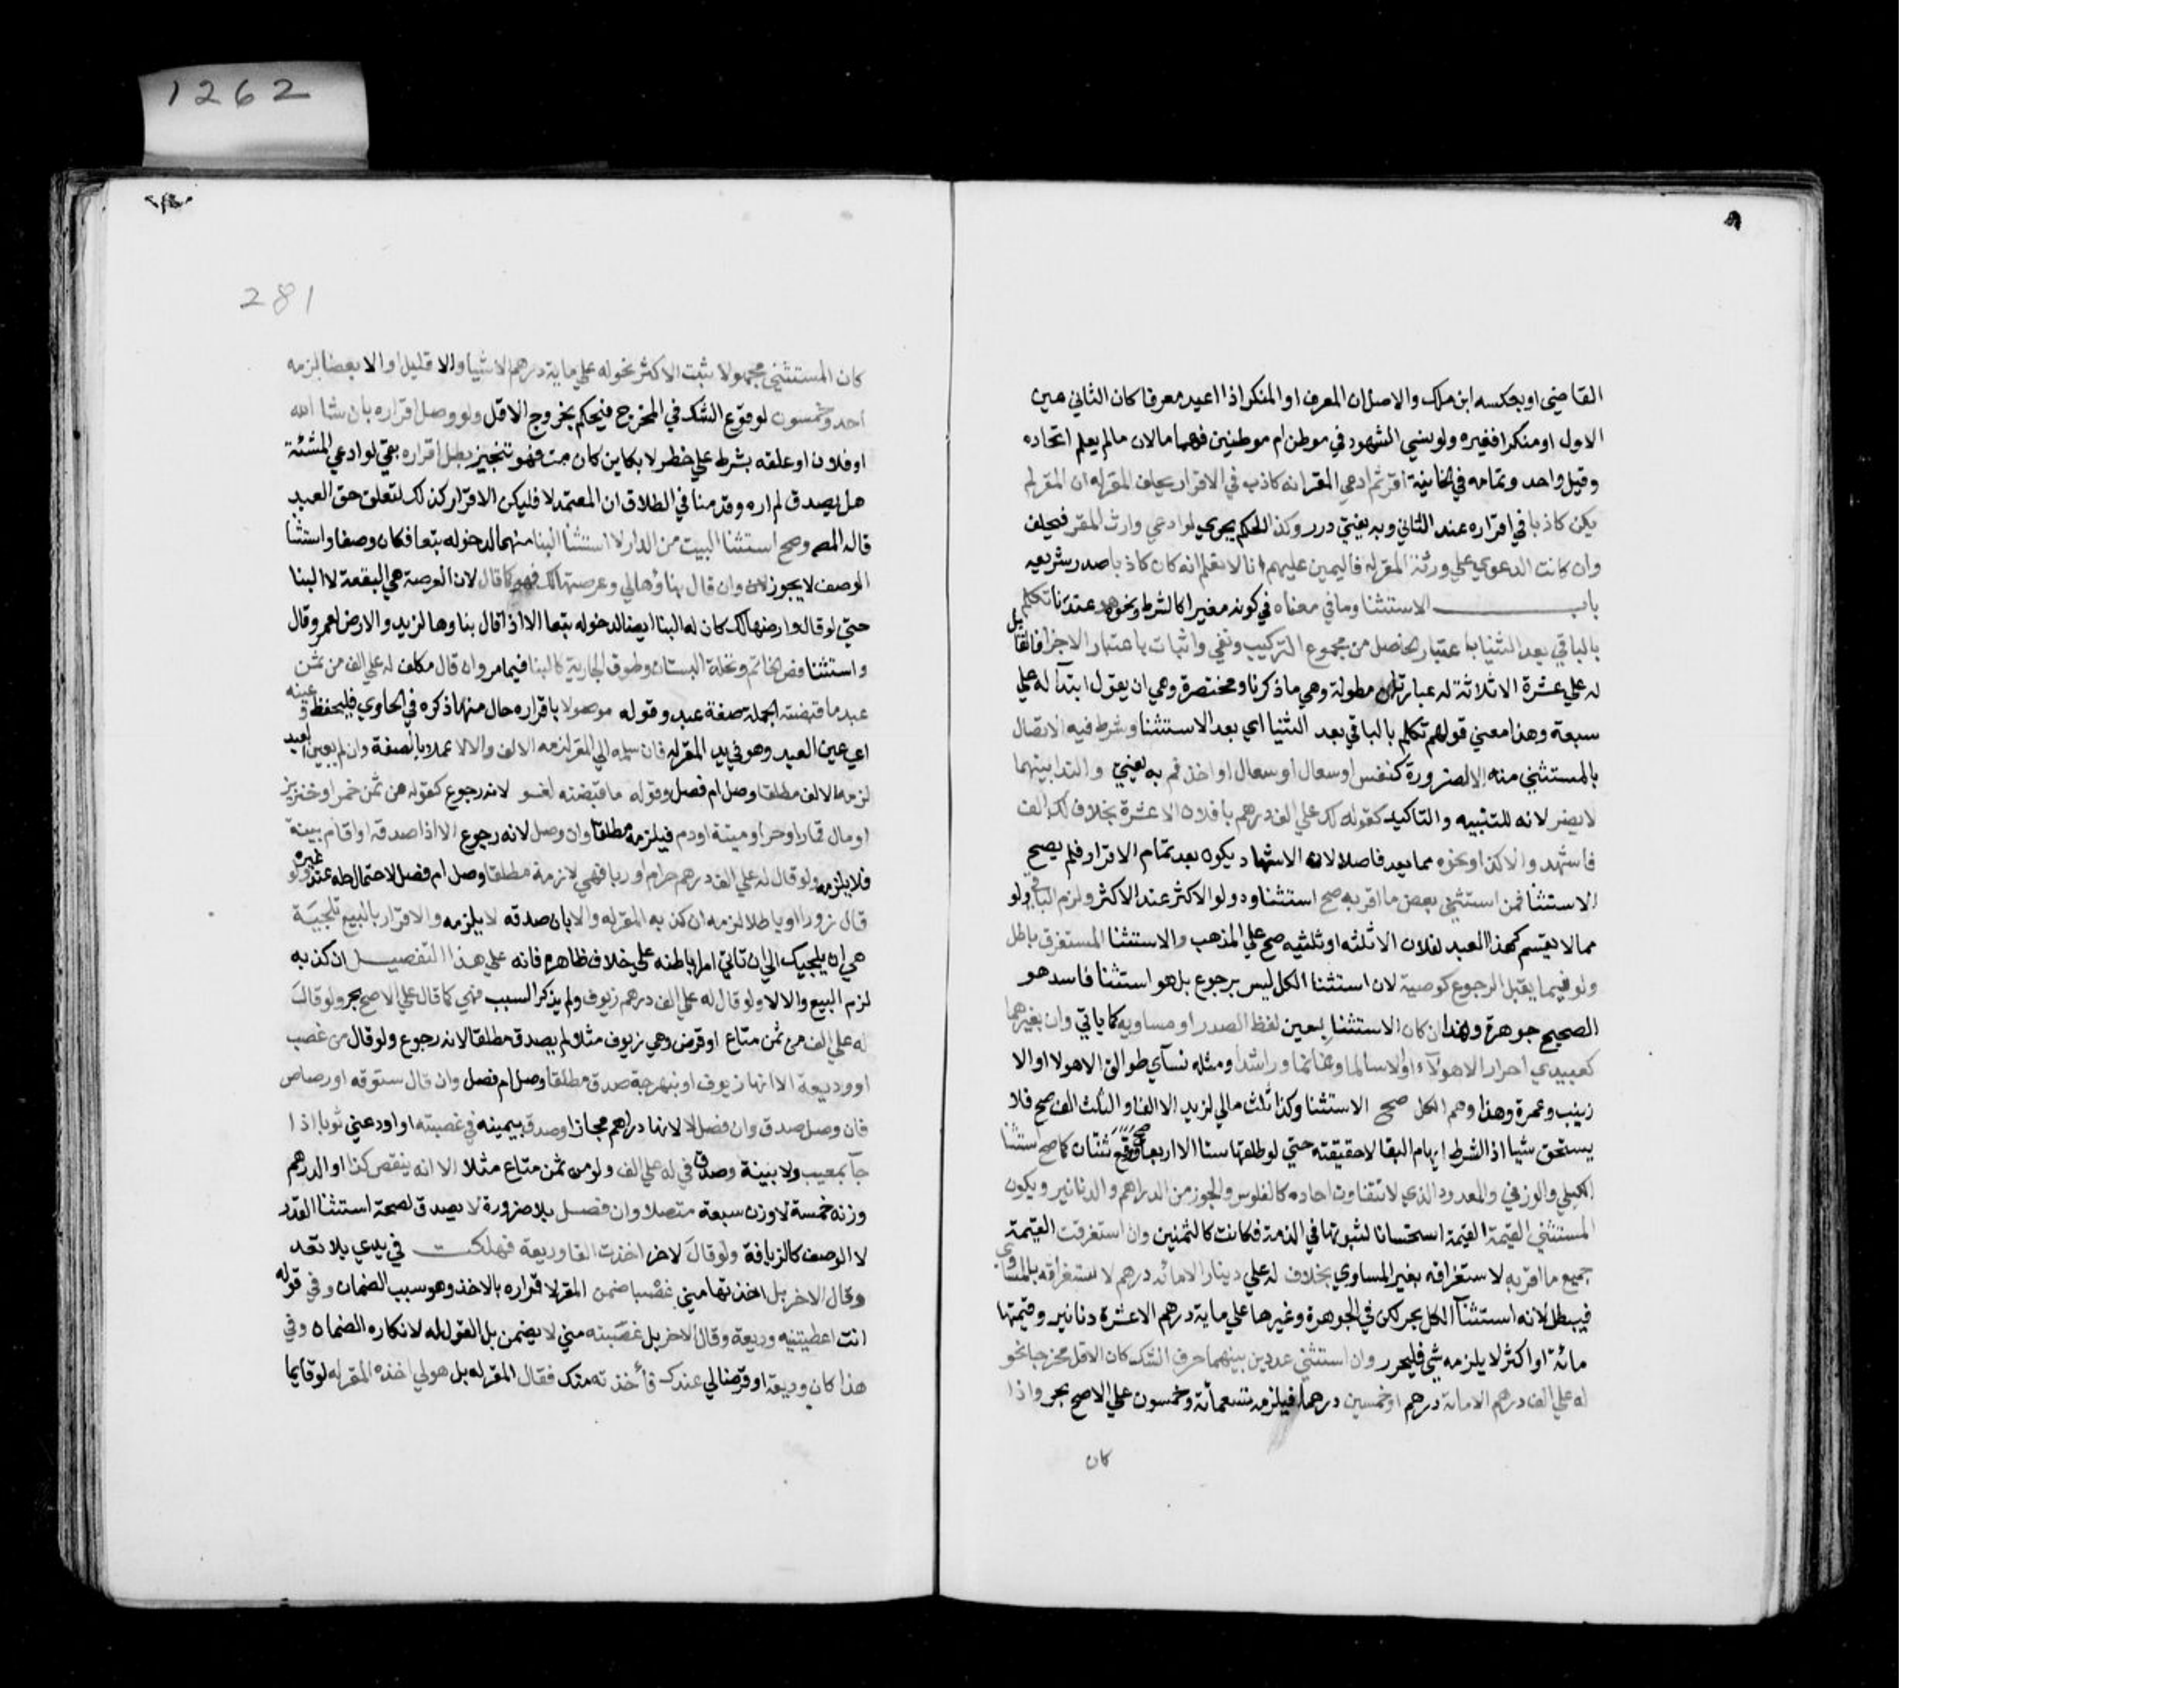 1262
281
القاضي او بعكسه ابن ملك والاصل ان المعرف او المنكر اذا اعيد معرفا كان الثاني عين
الاول او منكرا فغيره ولو نسي الشهود في موطن ام موطنين فهما مالان مالم يعلم اتحاده
وقيل واحد وتمامه في الخانية اقر ثم ادعي المقر انه كاذب في الاقرار يحلف المقر له ان المقر لم
يكن كاذبا في اقراره عند الثاني وبه يفتي درر وكذا الحكم يجري لو ادعي وارث المقر فيحلف
وان كانت الدعوي علي ورثة المقر له فاليمين عليهم انا لا نعلم انه كان كاذبا صدر شريعه
باب الاستثنا وما في معناه في كونه مغيرا كالشرط ونحوه هو عندنا تكلم
بالباقي بعد الثنيا باعتبار الحاصل من مجموع التركيب ونفي واثبات باعتبار الاجزا فالقايل
له علي عشرة الا ثلاثة له عبارتان مطولة وهي ما ذكرنا ومختصرة وهي ان يقول ابتدآ له علي
سبعة وهذا معني قولهم تكلم بالباقي بعد الثنيا اي بعد الاستثنا وشرط فيه الاتصال
بالمستثني منه الا لضرورة كنفس او سعال او سعال او اخذ فم به يفتي والندا بينهما
لا يضر لانه للتنبيه والتاكيد كقوله لك علي الف درهم يا فلان الا عشرة بخلاف لك الف
فاشهد والا كذا ونحوه مما يعد فاصلا لان الاشهاد يكون بعد تمام الاقرار فلم يصح
الاستثنا فمن استثني بعض ما اقر به صح استثناوه ولو الاكثر عند الاكثر ولزم الباقي ولو
مما لا يقسم كهذا العبد لفلان الا ثلثه او ثلثيه صح علي المذهب والاستثنا المستغرق باطل
ولو فيما يقبل الرجوع كوصية لان استثنا الكل ليس برجوع بل هو استثنا فاسد هو
الصحيح جوهرة وهذا ان كان الاستثنا بعين لفظ الصدر او مساويه كما ياتي وان بغيرهما
كعبيدي احرار الا هولآء او الا سالما وغانما وراشدا ومثله نسآي طوالق الا هولا او الا
زينب وعمرة وهندا وهم الكل صح الاستثنا وكذا ثلث مالي لزيد الا الفا والثلث الف صح فلا
يستحق شيا اذ الشرط ايهام البقا لا حقيقته حتي لو طلقها ستا الا اربعا صح ووقع ثنتان كما صح استثنا
الكيلي والوزني والمعدود الذي لا تتفاوت احاده كالفلوس والجوز من الدراهم والدنانير ويكون
المستثني القيمة القيمة استحسانا لثبوتها في الذمة فكانت كالثمنين وان استغرقت القيمة
جميع ما اقر به لاستغراقه بغير المساوي بخلاف له علي دينار الا مائة درهم لاستغراقه بالمساوي
فيبطل لانه استثنآ الكل بحر لكن في الجوهرة وغيرها علي ماية درهم الا عشرة دنانير وقيمتها
مائة او اكثر لا يلزمه شي فليحرر وان استثني عددين بينهما حرف الشك كان الاقل مخرجا نحو
له علي الف درهم الا مائة درهم او خمسين درهما فيلزمه تسعمائة وخمسون علي الاصح بحر واذا
كان
كان المستثني مجهولا ثبت الاكثر نحو له علي ماية درهم الا شيا والا قليلا والا بعضا لزمه
احد وخمسون لوقوع الشك في المخرج فيحكم بخروج الاقل ولو وصل اقراره بان شا الله
او فلان او علقه بشرط علي خطر لا بكاين كان مت فهو تنجيز بطل اقراره بقي لو ادعي المشئة
هل يصدق لم اره وقدمنا في الطلاق ان المعتمد لا فليكن الاقرار كذلك لتعلق حق العبد
قاله المص وصح استثنا البيت من الدار لا استثنا البنا منهما لدخوله تبعا فكان وصفا واستثنا
الوصف لا يجوز وان قال بناؤها لي وعرصتها لك فهو كما قال لان العرصة هي البقعة لا البنا
حتي لو قال وارضها لك كان له البنا ايضا لدخوله تبعا الا اذا قال بناوها لزيد والارض لعمر وقال
واستثنا فص الخاتم ونخلة البستان وطوق الجارية كالبنا فيما مر وان قال مكلف له علي الف من ثمن
عبد ما قبضته الجملة صفة عبد وقوله موصولا باقراره حال منها ذكره في الحاوي فليحفظ وعينه
اي عين العبد وهو في يد المقر له فان سلمه الي المقر لزمه الالف والا لا عملا بالصفة وان لم يعين العبد
لزمه الالف مطلقا وصل ام فصل وقوله ما قبضته لغو لانه رجوع كقوله من ثمن خمر او خنزير
او مال قمار او حر او ميتة او دم فيلزمه مطلقا وان وصل لانه رجوع الا اذا صدقه او اقام بينة
فلا يلزمه ولو قال له علي الف درهم حرام او ربا فهي لازمة مطلقا وصل ام فصل لاحتمال حله عند غيره ولو
قال زورا او باطلا لزمه ان كذبه المقر له والا بان صدقه لا يلزمه والاقرار بالبيع تلجية
هي ان يلجيك الي ان تاتي امرا باطنه علي خلاف ظاهره فانه علي هذا التفصيل ان كذبه
لزم البيع والا لا ولو قال له علي الف درهم زيوف ولم يذكر السبب فهي كما قال علي الاصح بحر ولو قال
له علي الف من ثمن متاع او قرض وهي زيوف مثلا لم يصدق مطلقا لانه رجوع ولو قال من غصب
او وديعة الا انها زيوف او بنهرجة صدق مطلقا وصل ام فصل وان قال ستوقه او رصاص
فان وصل صدق وان فصل لا لانها دراهم مجازا وصدق بيمينه في غصبته او اودعني ثوبا اذا
جآ بمعيب ولا بينة وصدق في له علي الف ولو من ثمن متاع مثلا الا انه ينقص كذا او الدرهم
وزنه خمسة لا وزن سبعة متصلا وان فصل بلا ضرورة لا يصدق لصحة استثنا القدر
لا الوصف كالزيافة ولو قال لاخر اخذت الفا وديعة فهلكت في يدي بلا تعد
وقال الاخر بل اخذتها مني غصبا ضمن المقر لاقراره بالاخذ وهو سبب الضمان وفي قوله
انت اعطيتنيه وديعة وقال الاخر بل غصبته مني لا يضمن بل القول له لانكاره الضمان وفي
هذا كان وديعة او قرضا لي عندك فأخذته منك فقال المقر له بل هو لي اخذه المقر له لو قايما